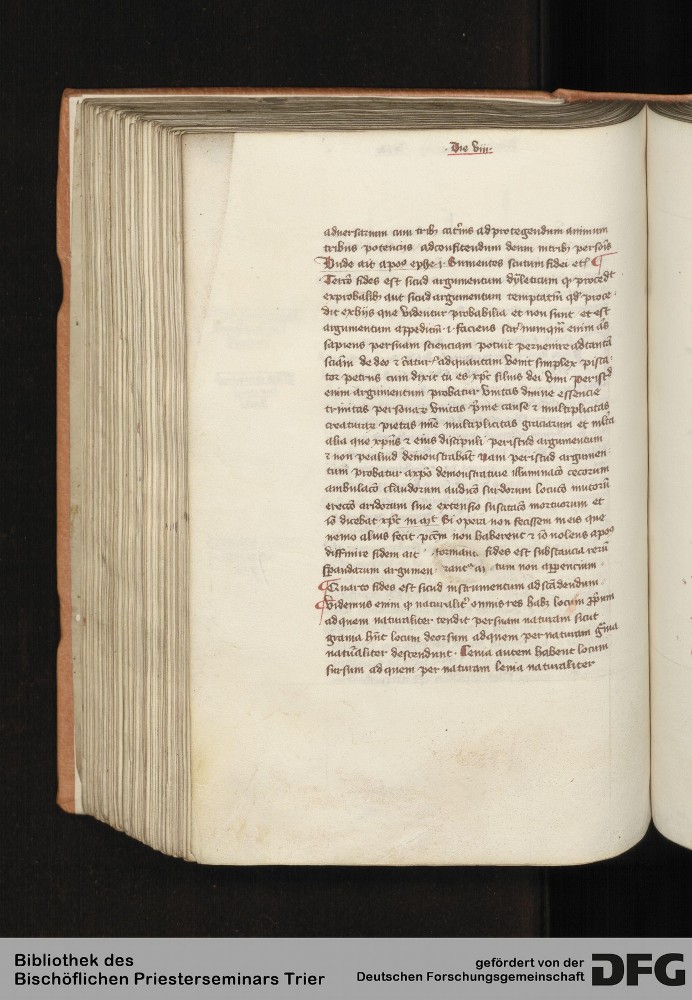 · Die viii ·
adversarium cum trib3 cat'nis ad protegendum animum
tribus potenciis ad confitendum deum in trib3 p̲er̲s̲o̅i̅s̲
Unde ait apo9 ephe · i · Sumentes scutum fidei et
Tercio fides est sicud argumentum dyleticum q̇ proced't
ex probalib3 aut sicud argumentum temptatm̄ qd' proce
dit ex hijs que videntur probabilia et non sunt et est
argumentum appeditm̄ · i · faciens numquā enim
sapiens per suam scienciam potuit pervenire ad tantā
de deo et ad quantam venit simplex pisca
tor petrus cum dixit tu es xp̄c filius dei vivi per istd'
enim argumentum probatur unitas divine essencie
trinitas personar unitas p̄me cause et multiplicitas
creaturar pietas multiplicitas graciarum et mlta
alia que xp̄us et eius discipuli per istud argumentum
et non per aliud demonstrabāt Nam per istud argumen
tum probatur a xp̄o demonstrative illuminacō cecorum
ambulacō claudorum audicō surdorum locucō mutorū
ereccō aridorum sive extensio suscitacō mortuorum et
iō dicebat xp̄c Si opera non fecissem in eis que
nemo alius fecit pccm̄ non haberent et iō volens apo9
diffinire fidem ait · fides est substancia rerū
sperandarum argumen · tum non apparencium ·
Quarto fides est sicud instrumentum ad
Videmus enim q̇ naturalit' omnis res hab3 locum p̄prium
ad quem naturaliter tendit per suam naturam sicut
gravia hn̄t locum deorsum ad quem per naturam gravia
natu̅aliter descendunt · Levia autem habent locum
sursum ad quem per naturam levia naturaliter
Bibliothek des
Bischöflichen Priesterseminars Trier
gefördert von der
Deutschen Forschungsgemeinschaft
DFG